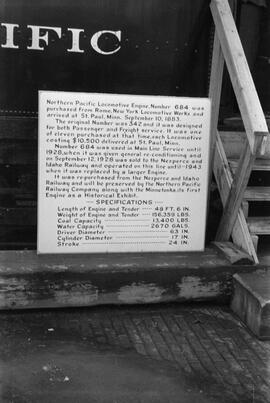 IFIC
Northern Pacific Locomotive Engine, Number 684 was
purchased from Rome, New York Locomotive Works and
arrived at St. Paul, Minn. September 10, 1883.
The original Number was 342 and it was designed
for both Passenger and Freight service. It was one
of eleven purchased at that time, each Locomotive
costing $10,500 delivered at St. Paul, Minn.
Number 684 was used in Main Line Service until
1928, when it was given general re-conditioning and
on September 12, 1928 was sold to the Nezperce and
Idaho Railway and operated on this line until 1943
when it was replaced by a larger Engine.
It was repurchased from the Nezperce and Idaho
Railway and will be preserved by the Northern Pacific
Railway Company along with the Minnetonka, its first
Engine as a Historical Exhibit.
SPECIFICATIONS
Length of Engine and Tender 49 FT. 6 IN.
Weight of Engine and Tender 156,359 LBS.
Coal Capacity 13,400 LBS.
Water Capacity 2670 GALS.
Driver Diameter 63 IN.
Cylinder Diameter 17 IN.
Stroke 24 IN.